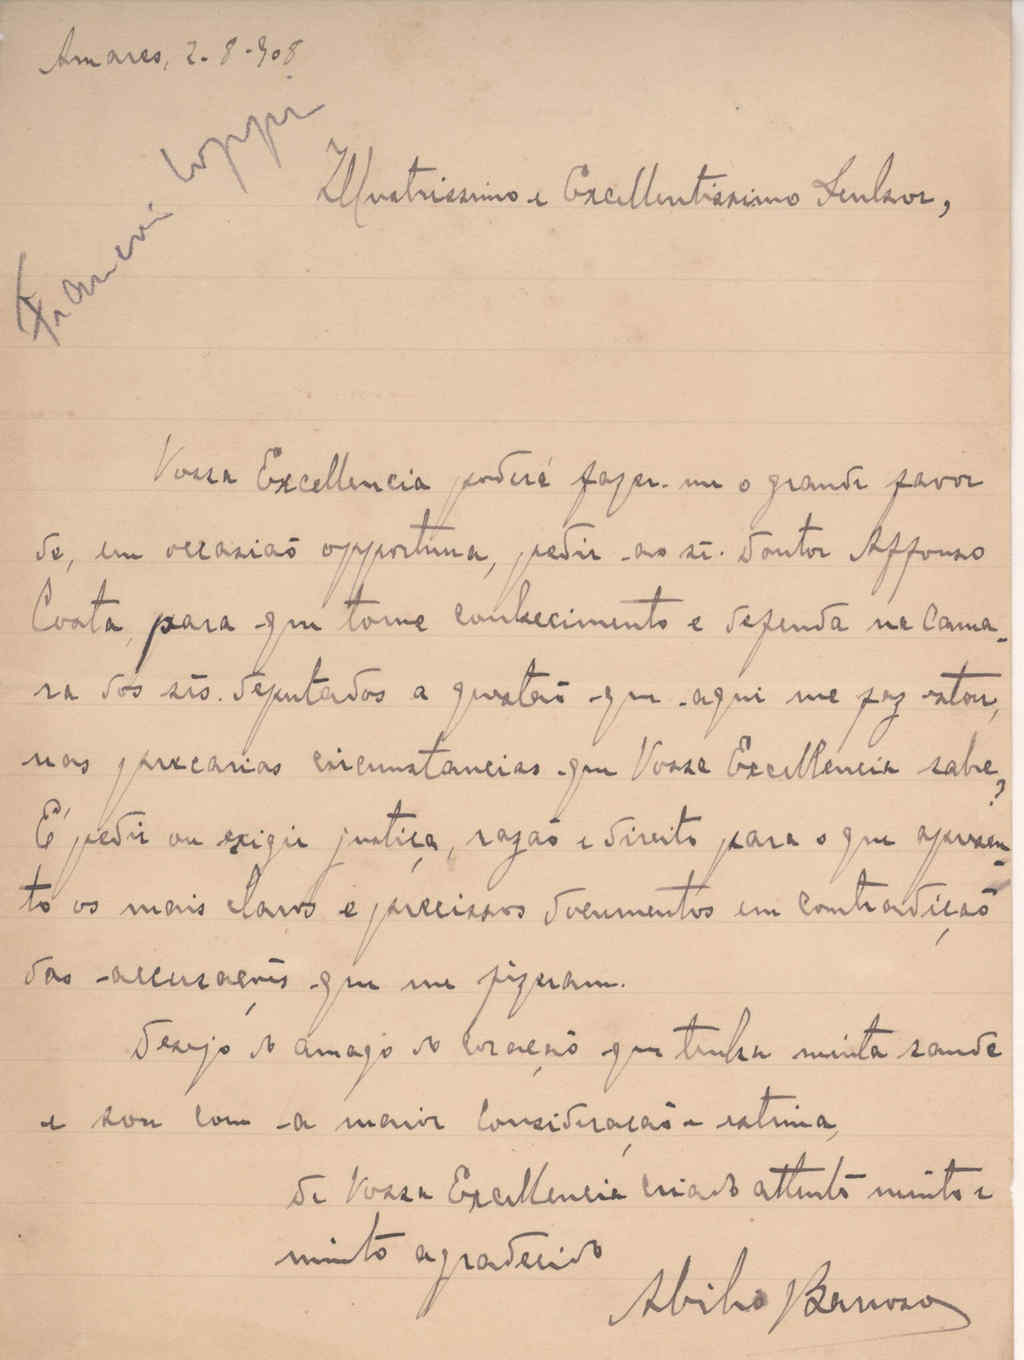 Amares, 2-8-908
Illustrissimo e Excellentissimo Senhor,
Vossa Excellencia poderá fazer-me o grande favor
de, em occasião opportuna, pedir ao sr. doutor Affonso
Costa, para que tome conhecimento e defenda na Cama-
ra dos srs. deputados a questão que aqui me faz estar,
nas precarias circumstancias que Vossa Excellencia sabe?
É pedir ou exigir justiça, razão e direito para o que apresen-
to os mais claros e precissos documentos em contradição
das accusações que me fizeram.
Desejo do amago do coração que tenha muita saude
e sou com a maior consideração e estima,
de Vossa Excellencia criado attento muito e
muito agradecido
Abilio Barroso